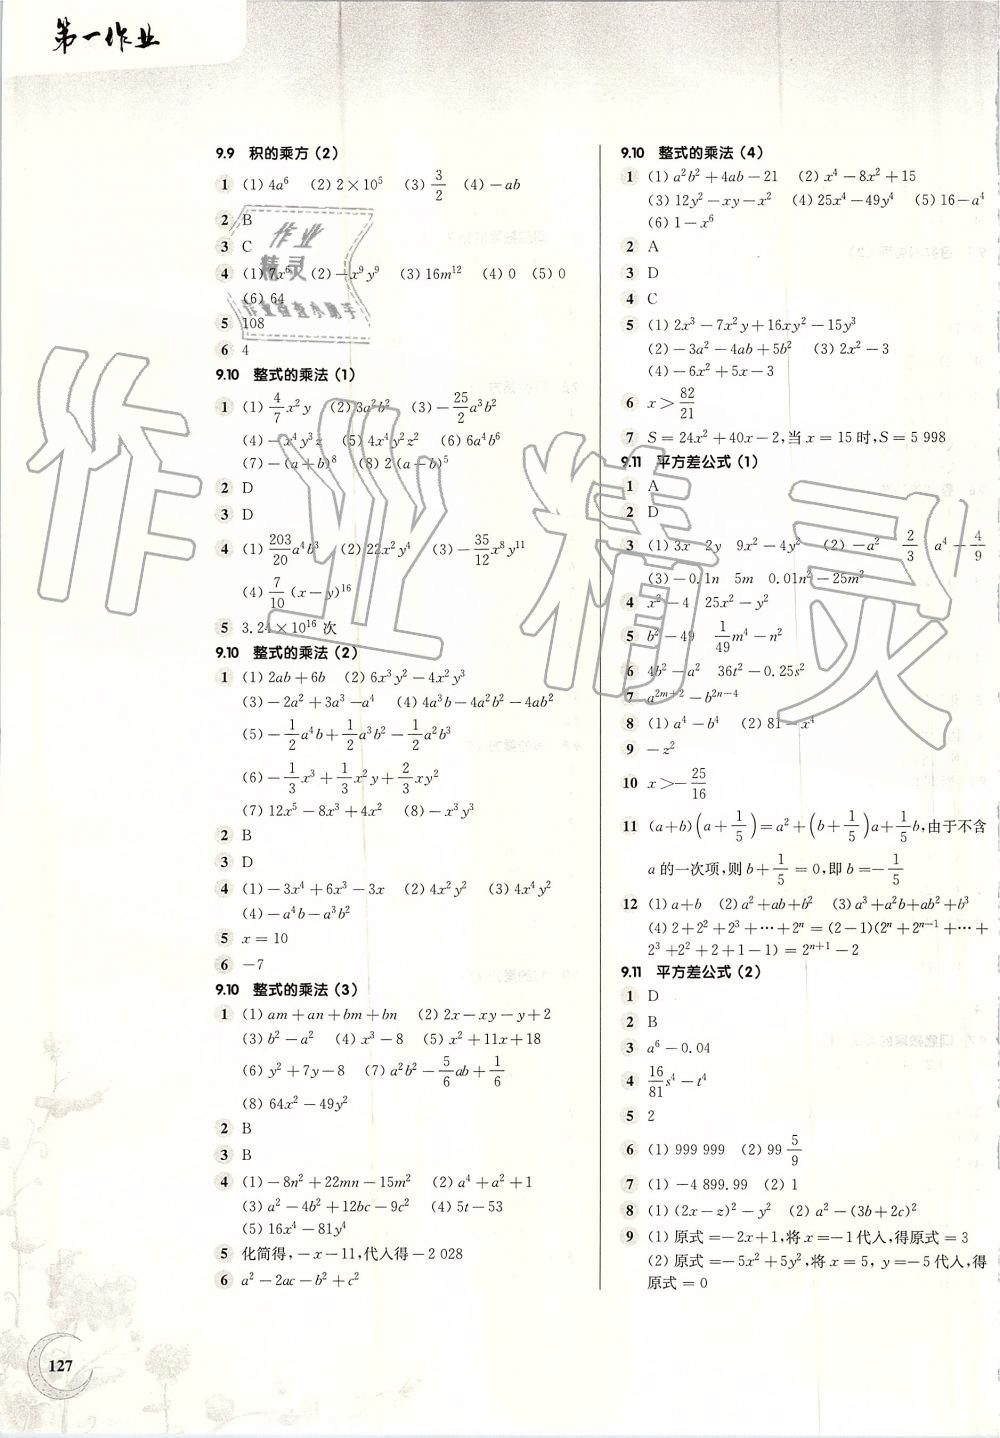 第一作业
9.9 积的乘方(2)
1 (1) 4a⁶ (2) 2×10⁵ (3) 3/2 (4) −ab
2 B
3 C
4 (1) 7x⁶ (2) −x⁹y⁹ (3) 16m¹² (4) 0 (5) 0
(6) 64
5 108
6 4
9.10 整式的乘法(1)
1 (1) 4/7 x²y (2) 3a²b² (3) −25/2 a³b²
(4) −x⁴y³z (5) 4x⁴y²z² (6) 6a⁴b⁶
(7) −(a+b)⁸ (8) 2(a−b)⁵
2 D
3 D
4 (1) 203/20 a⁴b³ (2) 22x²y⁴ (3) −35/12 x⁸y¹¹
(4) 7/10 (x−y)¹⁶
5 3.24×10¹⁶ 次
9.10 整式的乘法(2)
1 (1) 2ab+6b (2) 6x³y²−4x²y³
(3) −2a²+3a³−a⁴ (4) 4a³b−4a²b²−4ab²
(5) −1/2 a⁴b+1/2 a³b²−1/2 a²b³
(6) −1/3 x³+1/3 x²y+2/3 xy²
(7) 12x⁵−8x³+4x² (8) −x³y³
2 B
3 D
4 (1) −3x⁴+6x³−3x (2) 4x²y² (3) 4x⁴y²
(4) −a⁴b−a³b²
5 x=10
6 −7
9.10 整式的乘法(3)
1 (1) am+an+bm+bn (2) 2x−xy−y+2
(3) b²−a² (4) x³−8 (5) x²+11x+18
(6) y²+7y−8 (7) a²b²−5/6 ab+1/6
(8) 64x²−49y²
2 B
3 B
4 (1) −8n²+22mn−15m² (2) a⁴+a²+1
(3) a²−4b²+12bc−9c² (4) 5t−53
(5) 16x⁴−81y⁴
5 化简得,−x−11,代入得−2 028
6 a²−2ac−b²+c²
9.10 整式的乘法(4)
1 (1) a²b²+4ab−21 (2) x⁴−8x²+15
(3) 12y²−xy−x² (4) 25x⁴−49y⁴ (5) 16−a⁴
(6) 1−x⁶
2 A
3 D
4 C
5 (1) 2x³−7x²y+16xy²−15y³
(2) −3a²−4ab+5b² (3) 2x²−3
(4) −6x²+5x−3
6 x>82/21
7 S=24x²+40x−2,当x=15时,S=5 998
9.11 平方差公式(1)
1 A
2 D
3 (1) 3x 2y 9x²−4y² (2) −a² 2/3 a⁴−4/9
(3) −0.1n 5m 0.01n²−25m²
4 x²−4 25x²−y²
5 b²−49 1/49 m⁴−n²
6 4b²−a² 36t²−0.25s²
7 a²ᵐ⁺²−b²ⁿ⁻⁴
8 (1) a⁴−b⁴ (2) 81−x⁴
9 −z²
10 x>−25/16
11 (a+b)(a+1/5)=a²+(b+1/5)a+1/5 b,由于不含
a的一次项,则b+1/5=0,即b=−1/5
12 (1) a+b (2) a²+ab+b² (3) a³+a²b+ab²+b³
(4) 2+2²+2³+⋯+2ⁿ=(2−1)(2ⁿ+2ⁿ⁻¹+⋯+
2³+2²+2+1−1)=2ⁿ⁺¹−2
9.11 平方差公式(2)
1 D
2 B
3 a⁶−0.04
4 16/81 s⁴−t⁴
5 2
6 (1) 999 999 (2) 99 5/9
7 (1) −4 899.99 (2) 1
8 (1) (2x−z)²−y² (2) a²−(3b+2c)²
9 (1) 原式=−2x+1,将x=−1代入,得原式=3
(2) 原式=−5x²+5y²,将x=5,y=−5代入,得
原式=0
127
作业
精灵
作业检查小助手
作业精灵